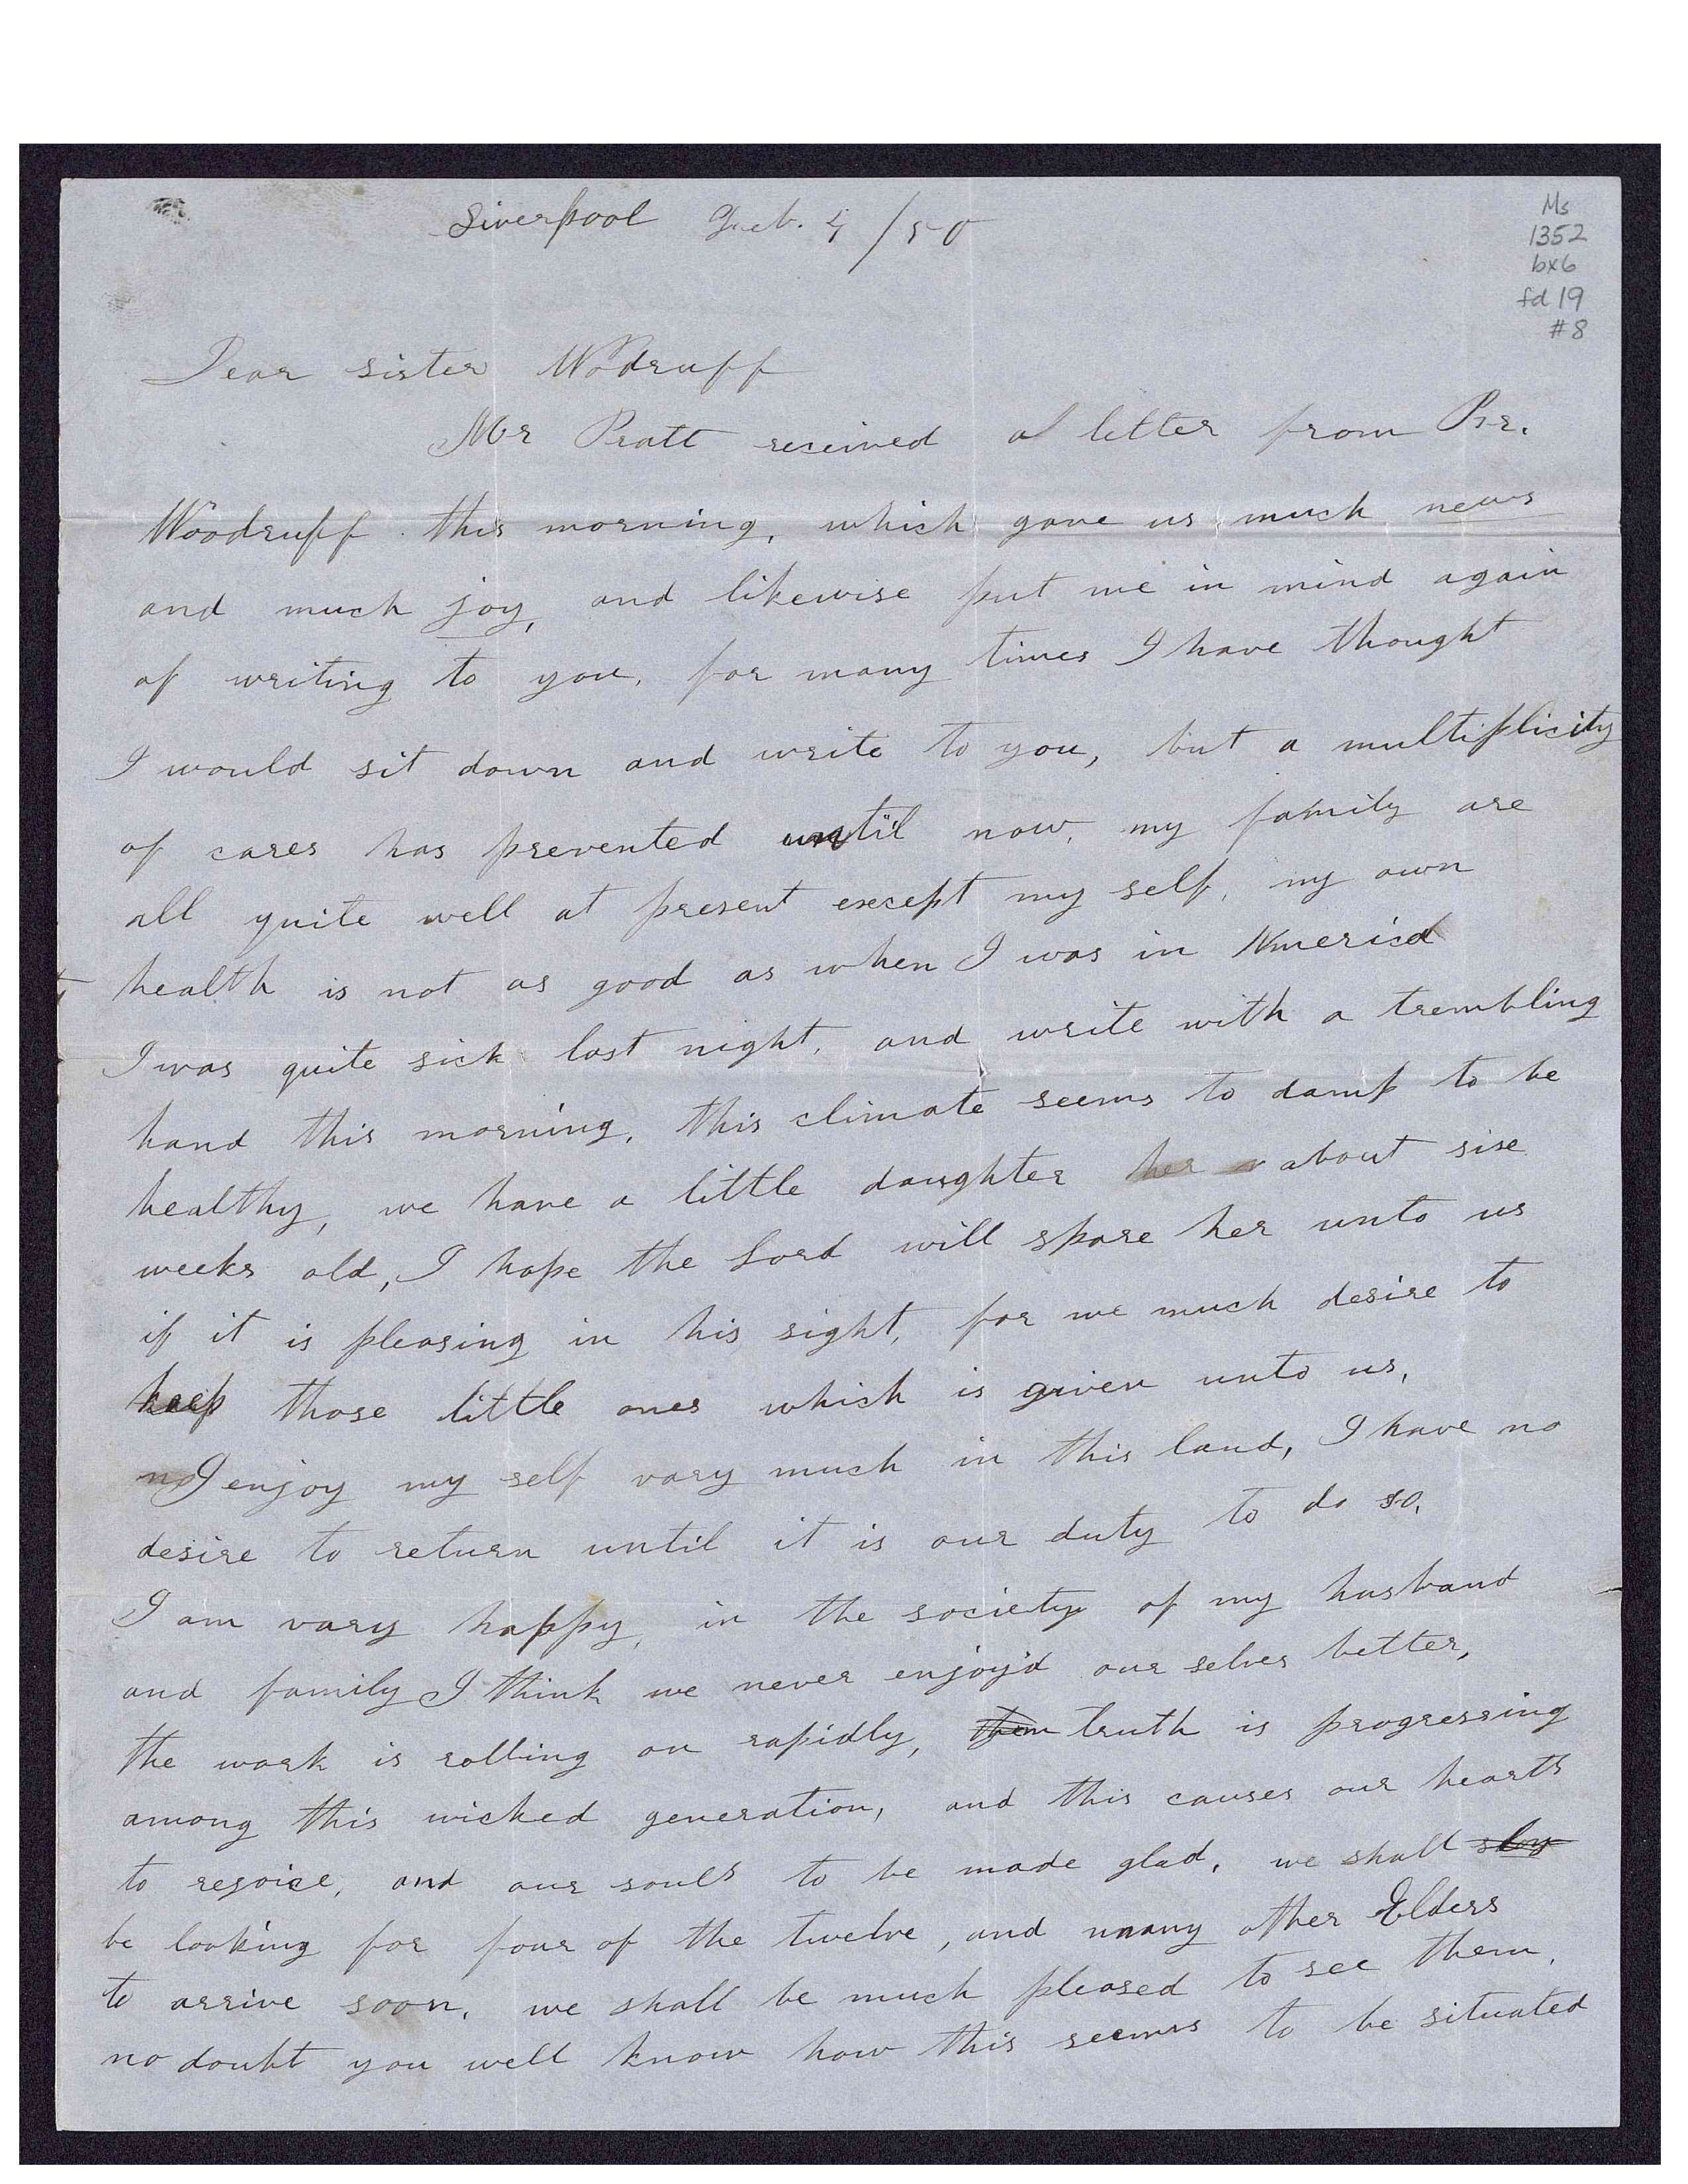 Liverpool Feb. 4/50
Ms
1352
bx6
fd 19
#8
Dear sister Wodruff
Mr Pratt received a letter from Br.
Woodruff this morning, which gave us much news
and much joy, and likewise put me in mind again
of writing to you, for many times I have thought
I would sit down and write to you, but a multiplicity
of cares has prevented until now, my family are
all quite well at present except my self, my own
health is not as good as when I was in America
I was quite sick last night, and write with a trembling
hand this morning, this climate seems to damp to be
healthy, we have a little daughter her about six
weeks old, I hope the Lord will spare her unto us
if it is pleasing in his sight, for we much desire to
keep those little ones which is given unto us,
I enjoy my self vary much in this land, I have no
desire to return until it is our duty to do so,
I am vary happy, in the society of my husband
and family I think we never enjoy'd our selves better,
the work is rolling on rapidly, them truth is progressing
among this wicked generation, and this causes our hearts
to rejoice, and our souls to be made glad, we shall
be looking for four of the twelve, and many other Elders
to arrive soon, we shall be much pleased to see them,
no doubt you well know how this seems to be situated